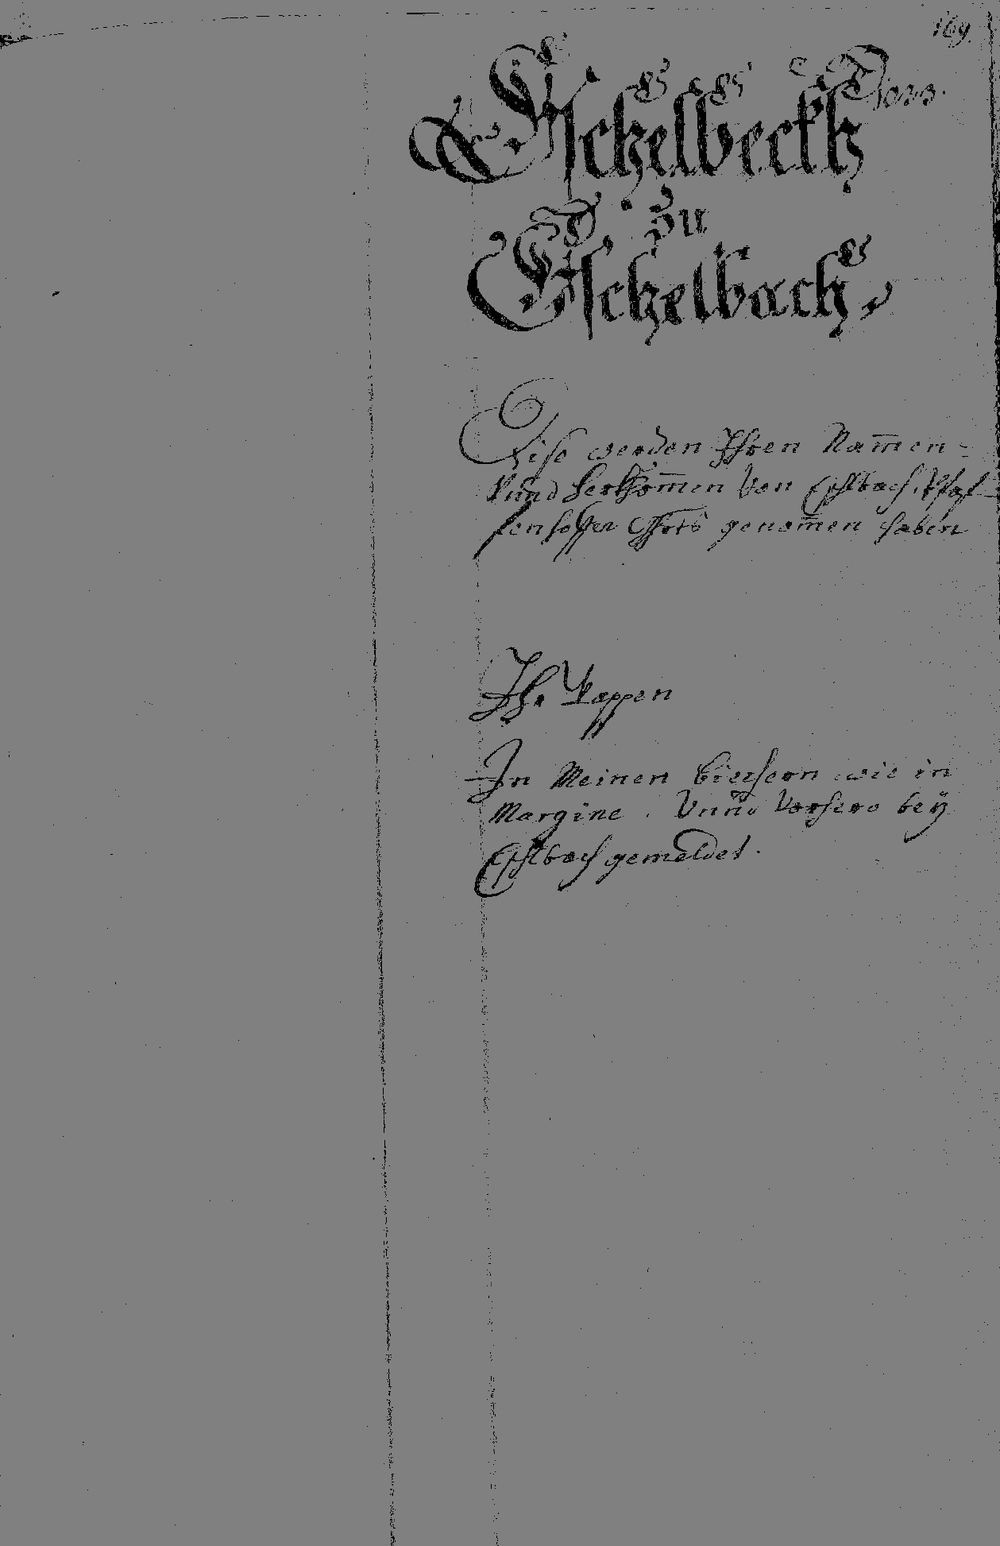 169.
Eschelbeckh
zu
Eschelbach,
Dise werden Ihren Nam̄en
Vnnd herkhom̄en von Eschlbach, Pfaf-
fenhoffer Ghrts genom̄en haben
Ihr Wappen
In Meinen Biechern wie in
Margine. Vnnd Vorhero beÿ
Eschlbach gemeldet.